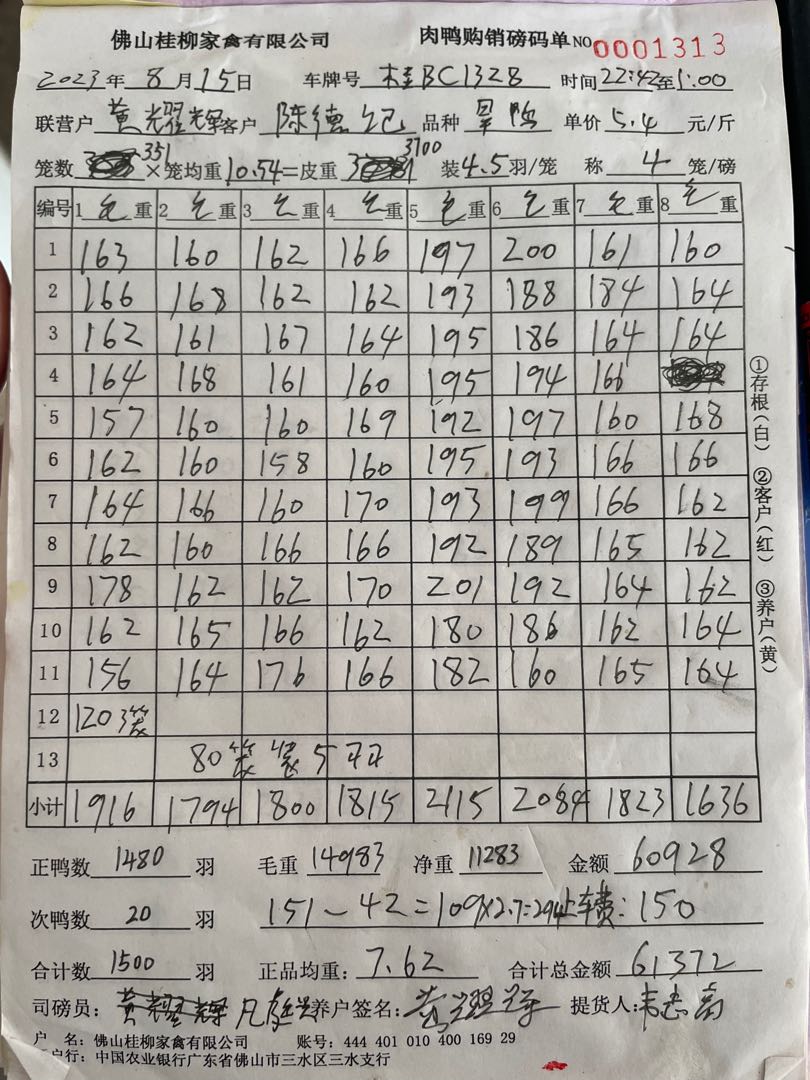 佛山桂柳家禽有限公司 肉鸭购销磅码单 NO 0001313
2023年8月15日 车牌号 桂BC1328 时间 22:42至1:00
联营户 黄耀辉 客户 陈德 品种 旱鸭 单价 5.4 元/斤
笼数 351 ×笼均重 10.54 =皮重 3700 装 4.5 羽/笼 称 4 笼/磅
编号 1 毛重 2 毛重 3 毛重 4 毛重 5 毛重 6 毛重 7 毛重 8 毛重
1 163 160 162 166 197 200 161 160
2 166 168 162 162 193 188 184 164
3 162 161 167 164 195 186 164 164
4 164 168 161 160 195 194 166
5 157 160 160 169 192 197 160 168
6 162 160 158 160 195 193 166 166
7 164 166 160 170 193 199 166 162
8 162 160 166 166 192 189 165 162
9 178 162 162 170 201 192 164 162
10 162 165 166 162 180 186 162 164
11 156 164 176 166 182 160 165 164
12 120 3笼
13 80笼装5只
小计 1916 1794 1800 1815 2115 2084 1823 1636
正鸭数 1480 羽 毛重 14983 净重 11283 金额 60928
次鸭数 20 羽 151-42=109×2.7=294 上车费:150
合计数 1500 羽 正品均重: 7.62 合计总金额 61372
司磅员: 黄耀辉 养户签名: 黄耀辉 提货人:
户 名: 佛山桂柳家禽有限公司 账号: 444 401 010 400 169 29
户行: 中国农业银行广东省佛山市三水区三水支行
①存根(白) ②客户(红) ③养户(黄)